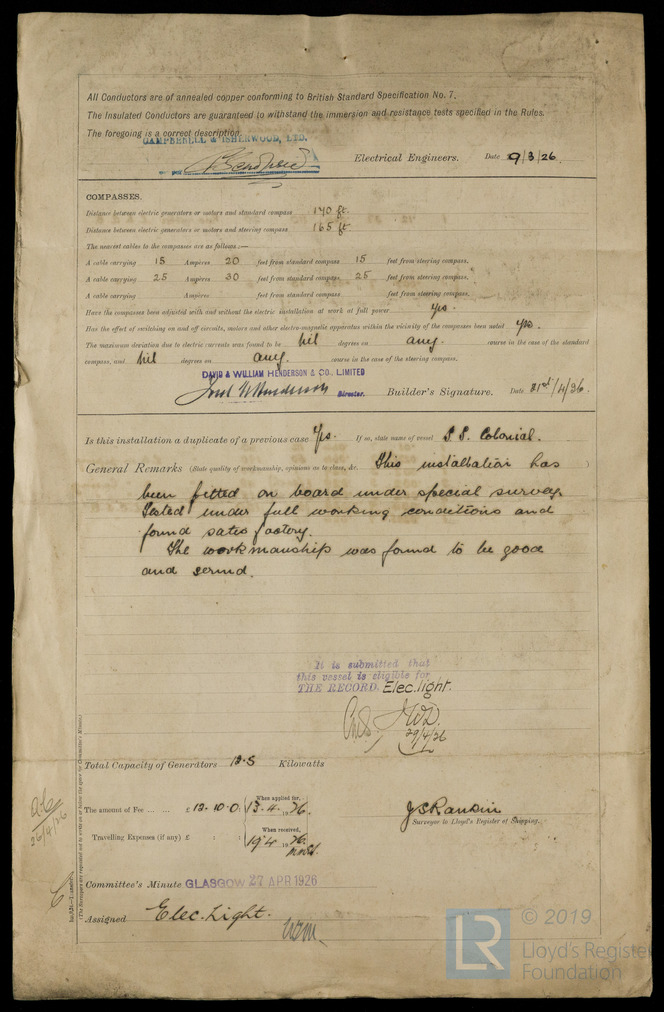 All Conductors are of annealed copper conforming to British Standard Specification No. 7.
The Insulated Conductors are guaranteed to withstand the immersion and resistance tests specified in the Rules.
The foregoing is a correct description.
CAMPBELL & ISHERWOOD, LTD.
Electrical Engineers. Date 9/3/26.
COMPASSES.
Distance between electric generators or motors and standard compass 140 ft.
Distance between electric generators or motors and steering compass 165 ft.
The nearest cables to the compasses are as follows:—
A cable carrying 15 Ampères 20 feet from standard compass 15 feet from steering compass.
A cable carrying 25 Ampères 30 feet from standard compass 25 feet from steering compass.
A cable carrying Ampères feet from standard compass feet from steering compass.
Have the compasses been adjusted with and without the electric installation at work at full power Yes.
Has the effect of switching on and off circuits, motors and other electro-magnetic apparatus within the vicinity of the compasses been noted Yes.
The maximum deviation due to electric currents was found to be Nil degrees on any. course in the case of the standard
compass, and Nil degrees on any. course in the case of the steering compass.
DAVID & WILLIAM HENDERSON & CO., LIMITED
Director. Builder's Signature. Date 21st/4/26.
Is this installation a duplicate of a previous case Yes. If so, state name of vessel S.S. Colonial.
General Remarks (State quality of workmanship, opinions as to class, &c. This installation has )
been fitted on board under special survey.
Tested under full working conditions and
found satisfactory.
The workmanship was found to be good
and sound.
It is submitted that
this vessel is eligible for
THE RECORD. Elec. light.
29/4/26
Total Capacity of Generators 13.5 Kilowatts
When applied for,
The amount of Fee ... ... £ 13.10.0 : 13.4.1926.
J S Rankin
Surveyor to Lloyd's Register of Shipping.
When received,
Travelling Expenses (if any) £ : : 19.4.1926.
26/4/26
(The Surveyors are requested not to write on or below the space for Committee's Minute.)
Committee's Minute GLASGOW 27 APR 1926
Assigned Elec. Light.
LR © 2019
Lloyd's Register
Foundation